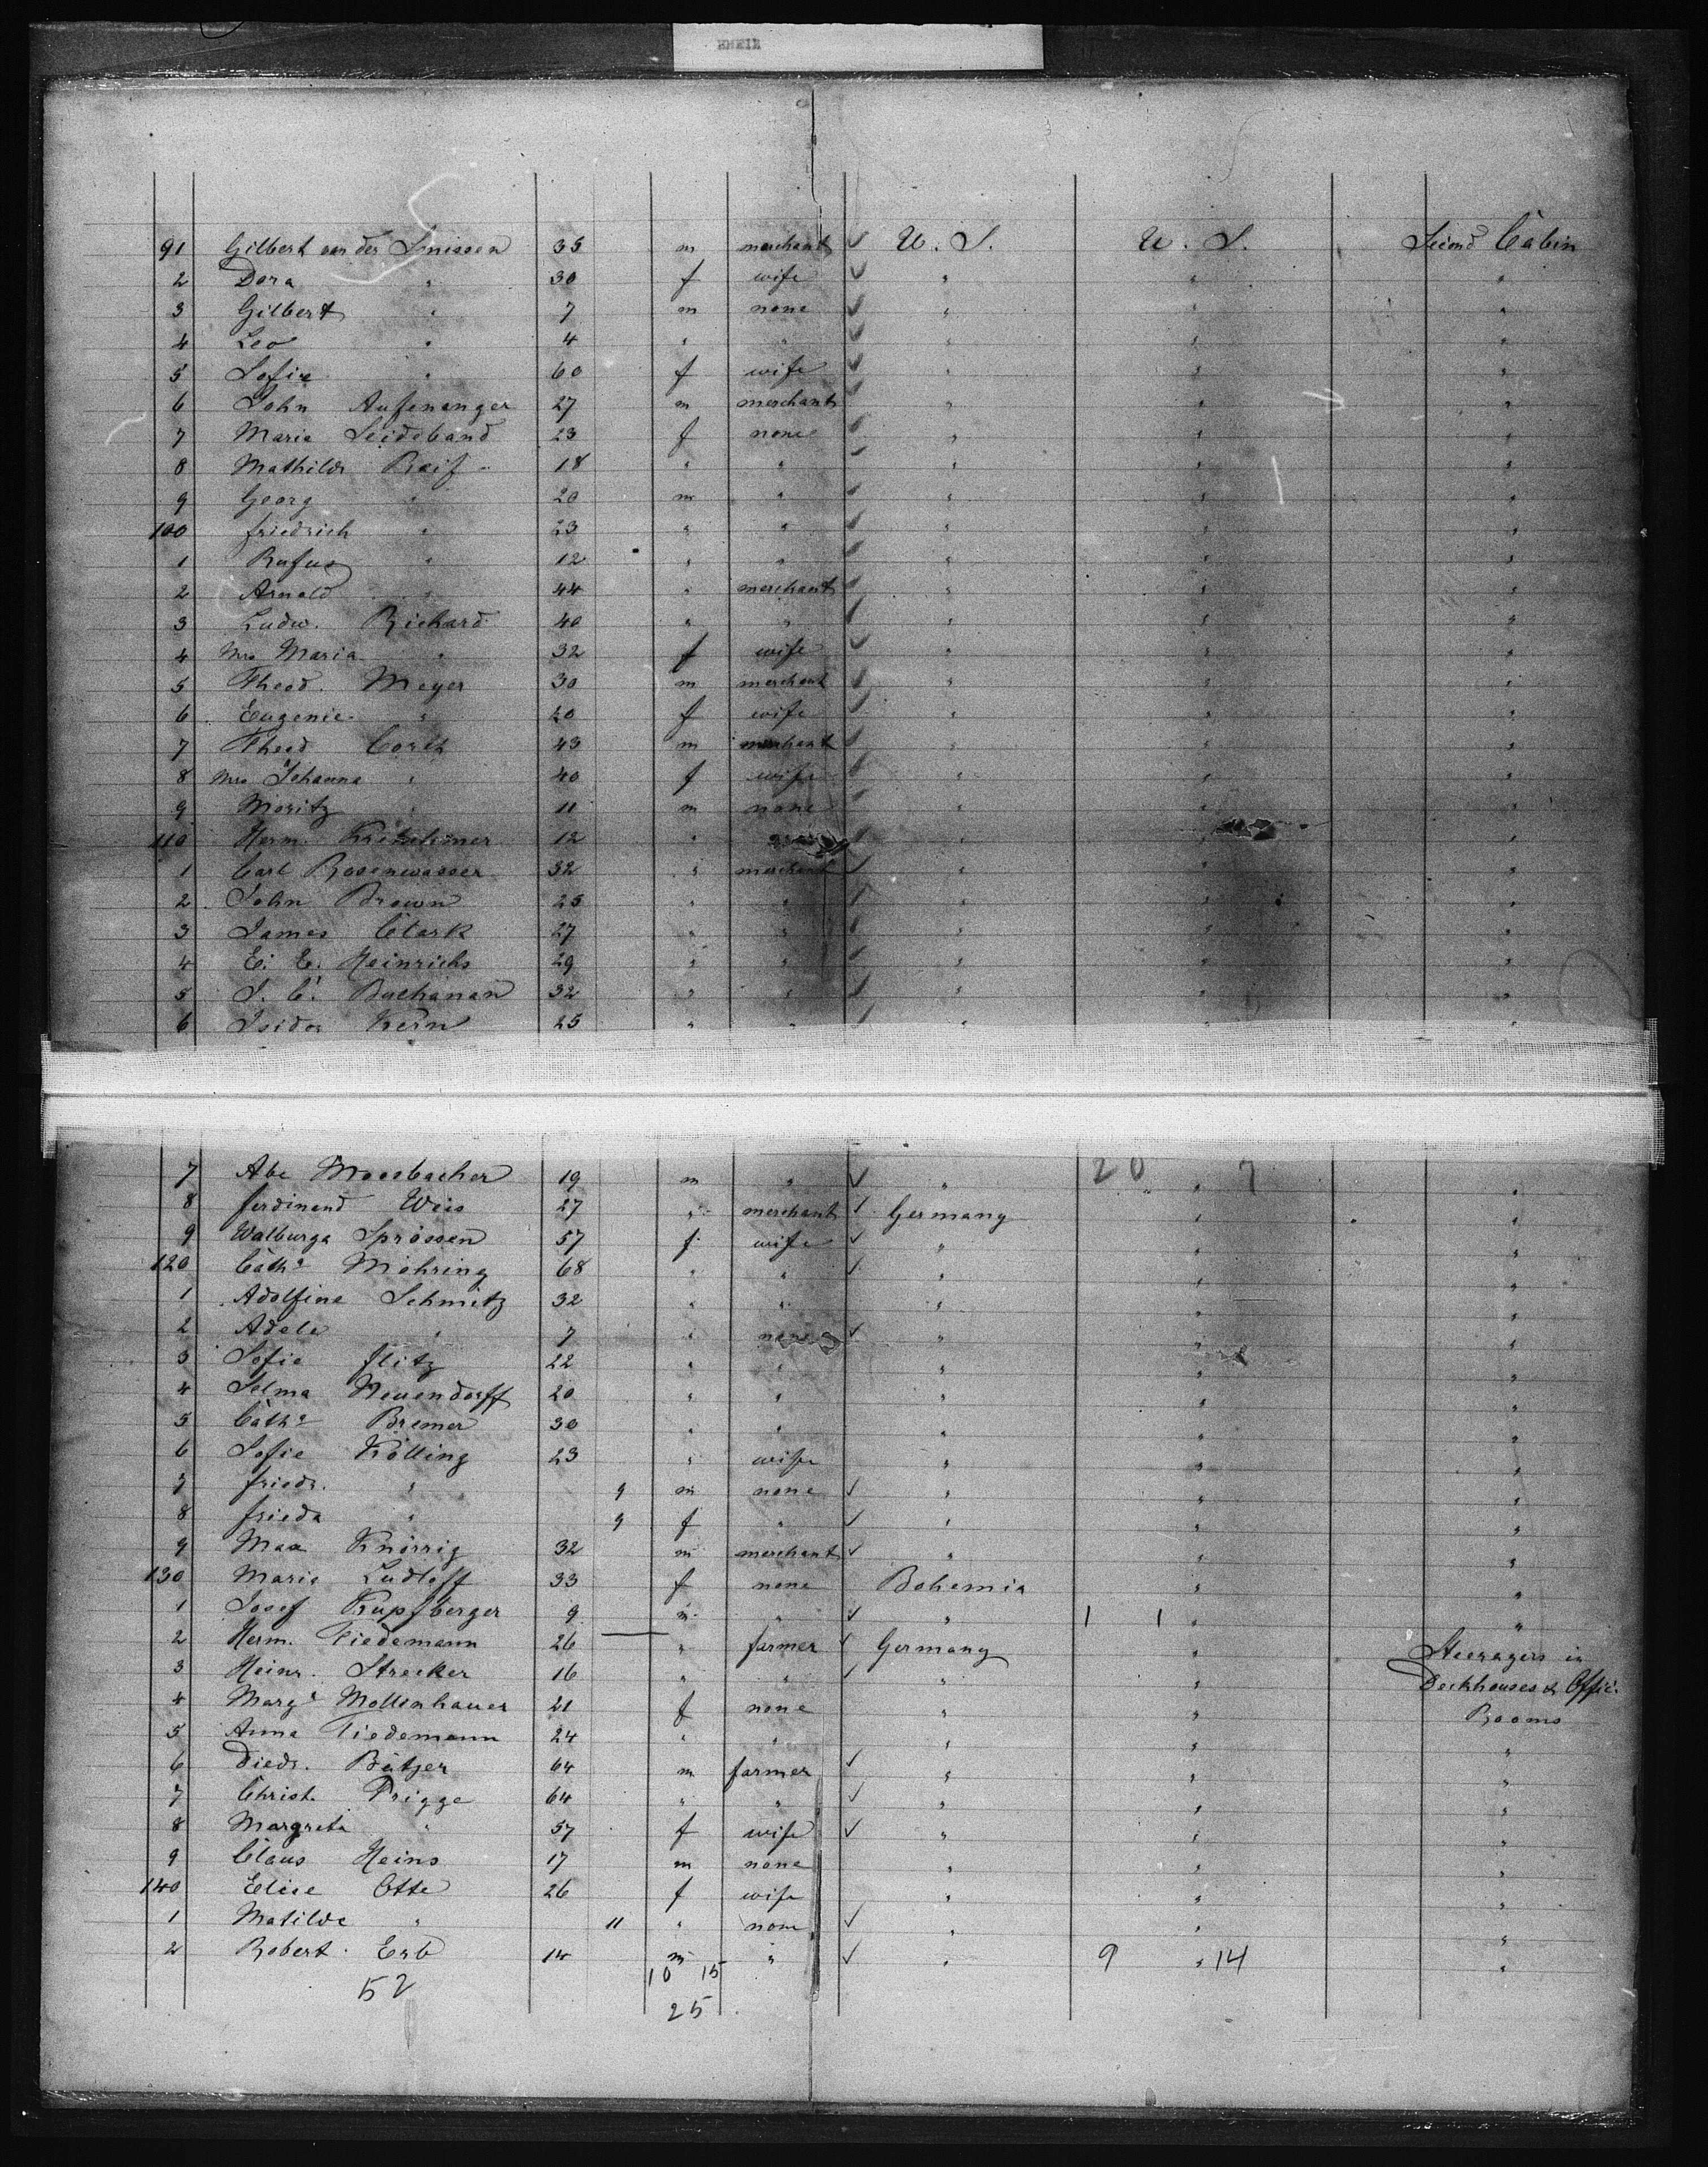 91 Gilbert van der Smissen 35 m merchant ✓ U. S. U. S. Second Cabin
2 Dora " 30 f wife ✓ " " "
3 Gilbert " 7 m none ✓ " " "
4 Leo " 4 " " ✓ " " "
5 Sofie " 60 f wife ✓ " " "
6 John Aufenanger 27 m merchant " " "
7 Maria Seideband 23 f none " " "
8 Mathilde Reif 18 " " " " "
9 Georg " 20 m " " " "
100 Friedrich " 23 " " " " "
1 Rufus " 12 " " " " "
2 Arnold " 44 " merchant " " "
3 Ludw. Richard 40 " " " " "
4 Mrs Maria " 32 f wife ✓ " " "
5 Theod. Meyer 30 m merchant " " "
6 Eugenie " 20 f wife " " "
7 Theod 43 m merchant " " "
8 Mrs Johanna " 40 f wife " " "
9 Moritz " 11 m none " " "
110 Herm. Kretschmer 12 " " " "
1 Carl Rosenwasser 32 " merchant ✓ " " "
2 John Brown 25 " " " " "
3 James Clark 27 " " " " "
4 E. E. Heinrichs 29 " " " " "
5 J. C. Buchanan 32 " " " " "
6 Isidor Kern 25 " " " "
7 Abe Moosbacher 19 m " ✓ " 20 " 7 "
8 Ferdinand Weis 27 " merchant ✓ Germany " "
9 Walburga Sprössen 57 f wife ✓ " " "
120 Cath. Mohring 68 " " ✓ " " "
1 Adolfine Schmitz 32 " " " " "
2 Adele " 7 " none ✓ " " "
3 Sofie Flitz 22 " " " " "
4 Selma Neuendorff 20 " " " " "
5 Cath. Bremer 30 " " " " "
6 Sofie Kölling 23 " wife " " "
7 Friedr. " 9 m none ✓ " " "
8 Frieda " 9 f " ✓ " " "
9 Max Knörrig 32 m merchant ✓ " " "
130 Maria Ludloff 33 f none Bohemia " "
1 Josef Kupfberger 9 m " ✓ " 1 1 " "
2 Herm. Tiedemann 26 " farmer ✓ Germany " Steeragers in
3 Heinr. Strecker 16 " " ✓ " " Deckhouses & Offic.
4 Marg. Mollenhauer 21 f none " " Rooms
5 Anna Tiedemann 24 " " " " "
6 Diedr. Bätjer 64 m farmer ✓ " " "
7 Christ. Prigge 64 " " ✓ " " "
8 Margreta " 57 f wife ✓ " " "
9 Claus Heins 17 m none " " "
140 Elise Otte 26 f wife " " "
1 Matilde " 11 " none ✓ " " "
2 Robert Erb 14 m " ✓ " 9 " 14 "
52 10 15
25